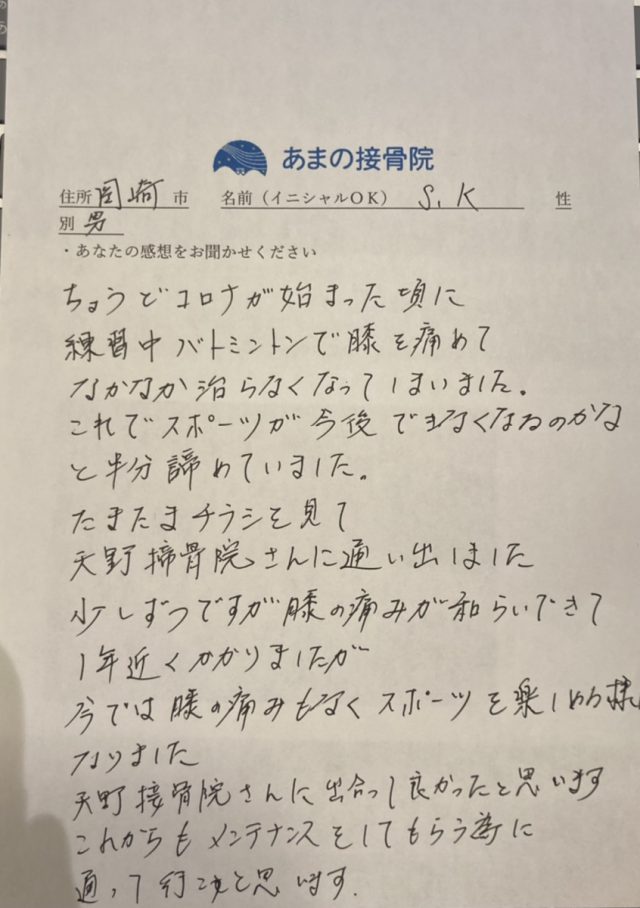 あまの接骨院
住所 岡崎 市 名前（イニシャルOK） S.K 性
別 男
・あなたの感想をお聞かせください
ちょうどコロナが始まった頃に
練習中バトミントンで膝を痛めて
なかなか治らなくなってしまいました。
これでスポーツが今後できなくなるのかな
と半分諦めていました。
たまたまチラシを見て
天野接骨院さんに通い出しました
少しずつですが膝の痛みが和らいできて
1年近くかかりましたが
今では膝の痛みもなくスポーツを楽しめる様に
なりました
天野接骨院さんに出合って良かったと思います
これからもメンテナンスをしてもらう為に
通って行こうと思います.